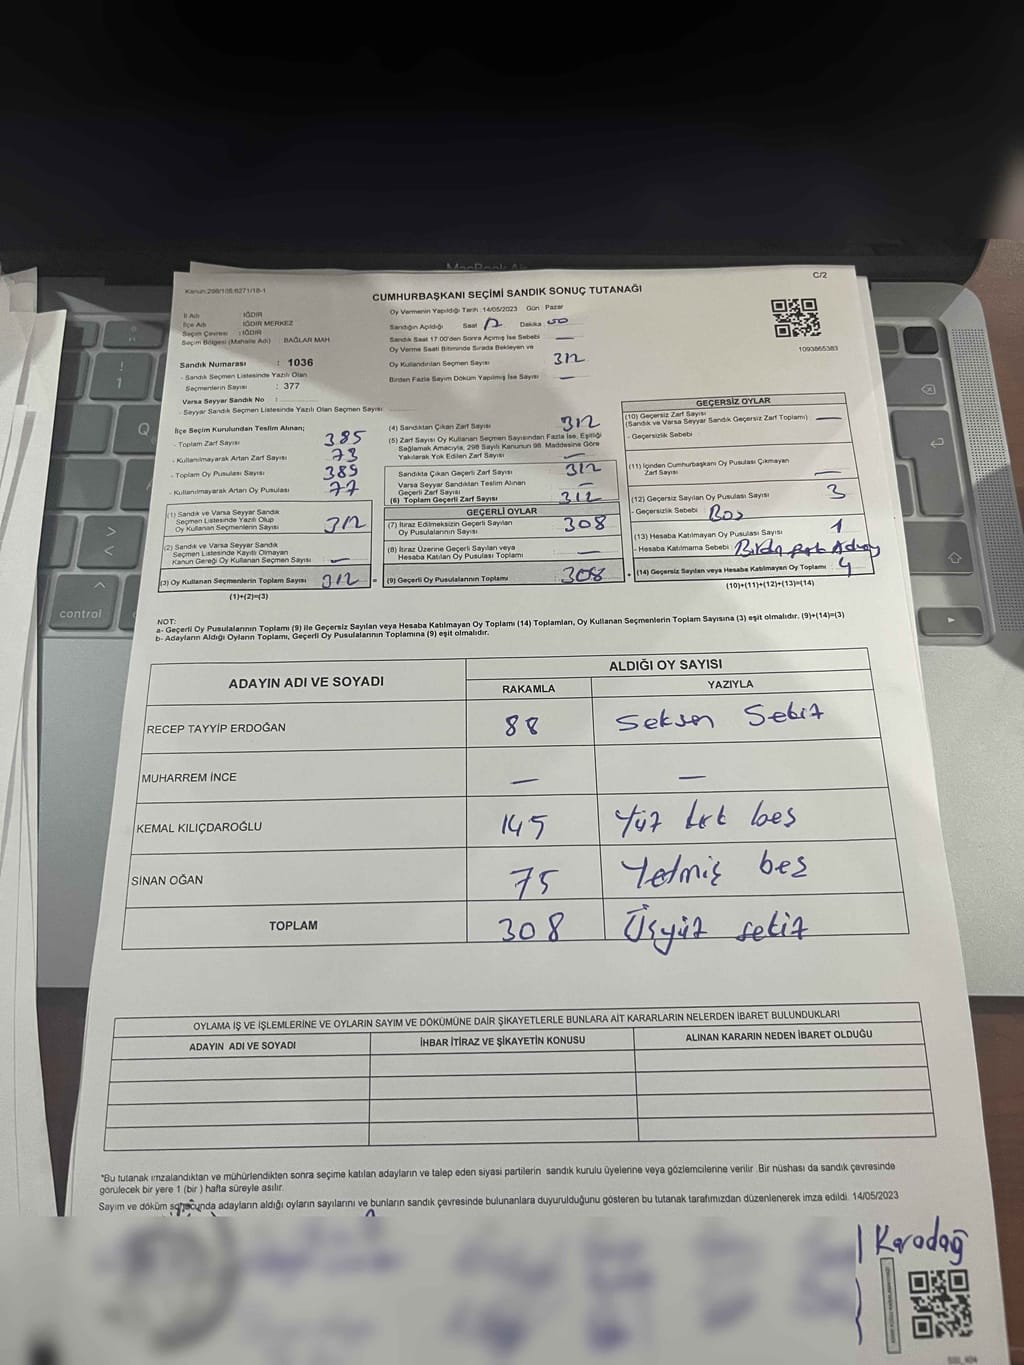 MacBook Air
C/2
Kanun:298/105;6271/18-1
CUMHURBAŞKANI SEÇİMİ SANDIK SONUÇ TUTANAĞI
İl Adı : IĞDIR
İlçe Adı : IĞDIR MERKEZ
Seçim Çevresi : IĞDIR
Seçim Bölgesi (Mahalle Adı) : BAĞLAR MAH.
Sandık Numarası : 1036
- Sandık Seçmen Listesinde Yazılı Olan
Seçmenlerin Sayısı : 377
Varsa Seyyar Sandık No :
- Seyyar Sandık Seçmen Listesinde Yazılı Olan Seçmen Sayısı
Oy Vermenin Yapıldığı Tarih : 14/05/2023 Gün : Pazar
Sandığın Açıldığı Saat Dakika 00
Sandık Saat 17:00'den Sonra Açılmış İse Sebebi —
Oy Verme Saati Bitiminde Sırada Bekleyen ve
Oy Kullandırılan Seçmen Sayısı 312
Birden Fazla Sayım Döküm Yapılmış İse Sayısı —
1093865383
İlçe Seçim Kurulundan Teslim Alınan;
- Toplam Zarf Sayısı 385
- Kullanılmayarak Artan Zarf Sayısı 73
- Toplam Oy Pusulası Sayısı 389
- Kullanılmayarak Artan Oy Pusulası 77
(1) Sandık ve Varsa Seyyar Sandık
Seçmen Listesinde Yazılı Olup
Oy Kullanan Seçmenlerin Sayısı 312
(2) Sandık ve Varsa Seyyar Sandık
Seçmen Listesinde Kayıtlı Olmayan
Kanun Gereği Oy Kullanan Seçmen Sayısı —
(3) Oy Kullanan Seçmenlerin Toplam Sayısı 312 =
(1)+(2)=(3)
(4) Sandıktan Çıkan Zarf Sayısı 312
(5) Zarf Sayısı Oy Kullanan Seçmen Sayısından Fazla İse, Eşitliği
Sağlamak Amacıyla, 298 Sayılı Kanunun 98. Maddesine Göre
Yakılarak Yok Edilen Zarf Sayısı —
Sandıkta Çıkan Geçerli Zarf Sayısı 312
Varsa Seyyar Sandıktan Teslim Alınan
Geçerli Zarf Sayısı —
(6) Toplam Geçerli Zarf Sayısı 312
GEÇERLİ OYLAR
(7) İtiraz Edilmeksizin Geçerli Sayılan
Oy Pusulalarının Sayısı 308
(8) İtiraz Üzerine Geçerli Sayılan veya
Hesaba Katılan Oy Pusulası Toplamı —
(9) Geçerli Oy Pusulalarının Toplamı 308 +
GEÇERSİZ OYLAR
(10) Geçersiz Zarf Sayısı
(Sandık ve Varsa Seyyar Sandık Geçersiz Zarf Toplamı) —
- Geçersizlik Sebebi
(11) İçinden Cumhurbaşkanı Oy Pusulası Çıkmayan
Zarf Sayısı —
(12) Geçersiz Sayılan Oy Pusulası Sayısı 3
- Geçersizlik Sebebi : Boş
(13) Hesaba Katılmayan Oy Pusulası Sayısı 1
- Hesaba Katılmama Sebebi :
(14) Geçersiz Sayılan veya Hesaba Katılmayan Oy Toplamı 4
(10)+(11)+(12)+(13)=(14)
NOT:
a- Geçerli Oy Pusulalarının Toplamı (9) ile Geçersiz Sayılan veya Hesaba Katılmayan Oy Toplamı (14) Toplamları, Oy Kullanan Seçmenlerin Toplam Sayısına (3) eşit olmalıdır. (9)+(14)=(3)
b- Adayların Aldığı Oyların Toplamı, Geçerli Oy Pusulalarının Toplamına (9) eşit olmalıdır.
ADAYIN ADI VE SOYADI
ALDIĞI OY SAYISI
RAKAMLA YAZIYLA
RECEP TAYYİP ERDOĞAN 88 Seksen Sekiz
MUHARREM İNCE — —
KEMAL KILIÇDAROĞLU 145 Yüz kırk beş
SİNAN OĞAN 75 Yetmiş beş
TOPLAM 308 Üçyüz sekiz
OYLAMA İŞ VE İŞLEMLERİNE VE OYLARIN SAYIM VE DÖKÜMÜNE DAİR ŞİKAYETLERLE BUNLARA AİT KARARLARIN NELERDEN İBARET BULUNDUKLARI
ADAYIN ADI VE SOYADI İHBAR İTİRAZ VE ŞİKAYETİN KONUSU ALINAN KARARIN NEDEN İBARET OLDUĞU
*Bu tutanak imzalandıktan ve mühürlendikten sonra seçime katılan adayların ve talep eden siyasi partilerin sandık kurulu üyelerine veya gözlemcilerine verilir. Bir nüshası da sandık çevresinde
görülecek bir yere 1 (bir ) hafta süreyle asılır.
Sayım ve döküm sonucunda adayların aldığı oyların sayılarını ve bunların sandık çevresinde bulunanlara duyurulduğunu gösteren bu tutanak tarafımızdan düzenlenerek imza edildi. 14/05/2023
Karadağ
! 1
Q
> <
control